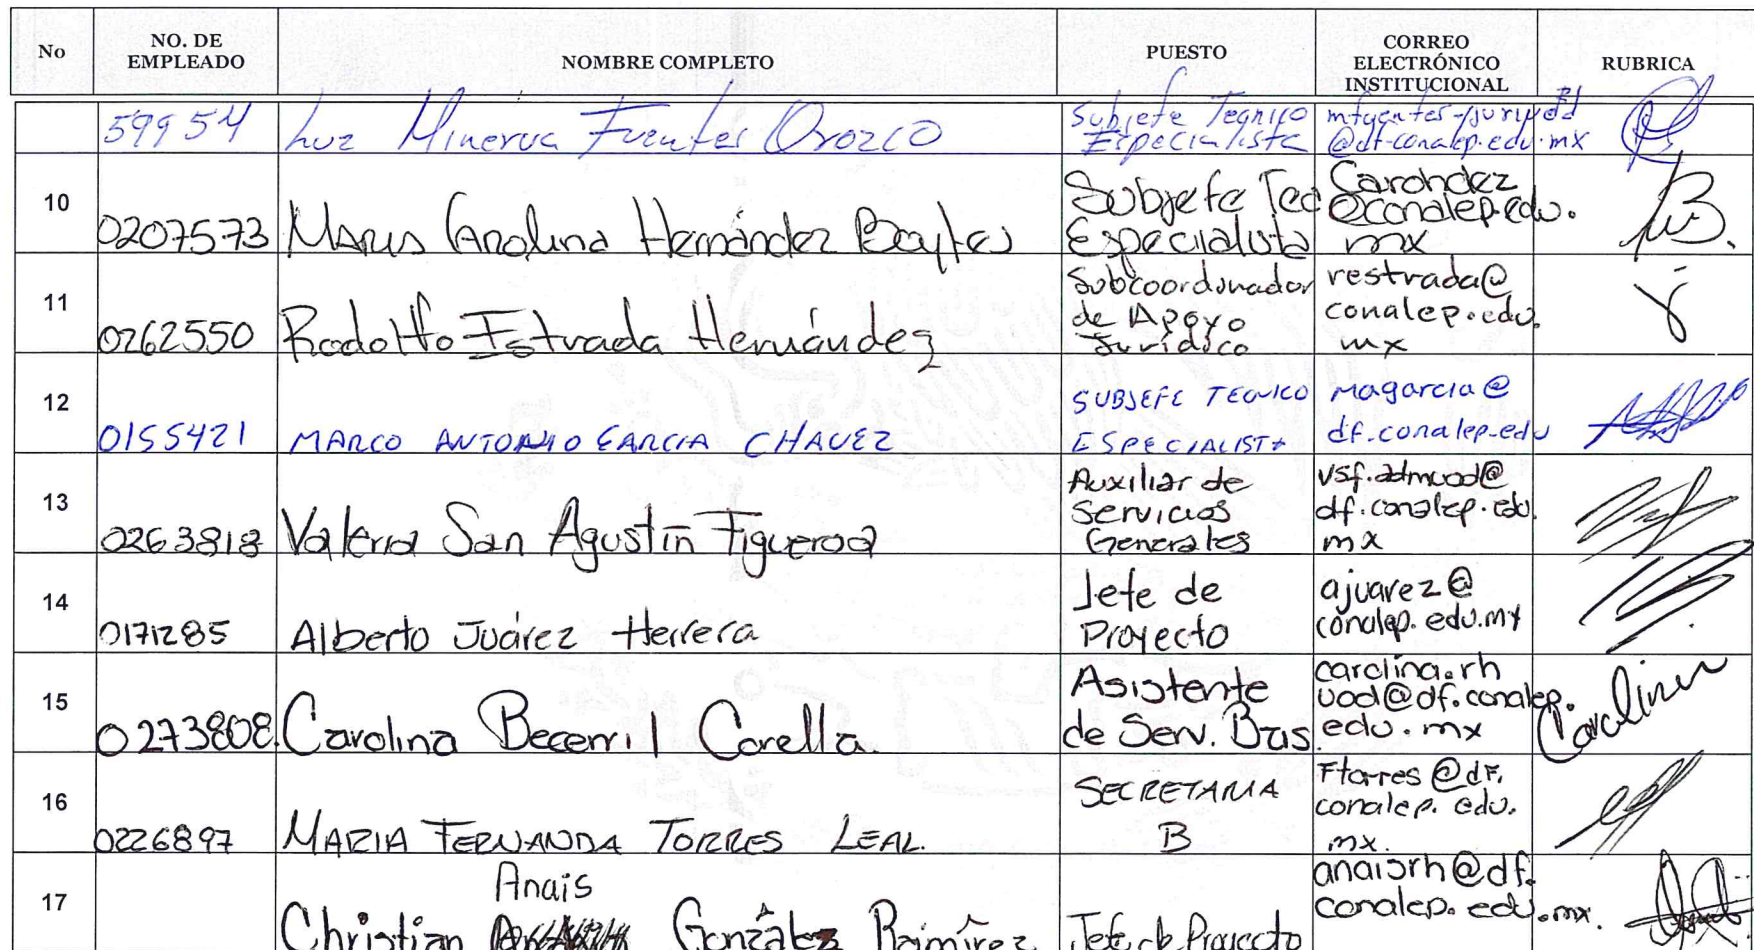 No
NO. DE EMPLEADO
NOMBRE COMPLETO
PUESTO
CORREO ELECTRÓNICO INSTITUCIONAL
RUBRICA
59954 Luz Minerva Fuentes Orozco Subjefe Tecnico Especialista @df.conalep.edu.mx
10 0207573 Carolina Hernández Subjefe Tec Especialista Carohdez @conalep.edu.mx
11 0262550 Rodolfo Estrada Hernández Subcoordinador de Apoyo Jurídico restrada@conalep.edu.mx
12 0155421 MARCO ANTONIO GARCIA CHAVEZ SUBJEFE TECNICO ESPECIALISTA magarcia@df.conalep.edu
13 0263818 Valeria San Agustín Figueroa Auxiliar de Servicios Generales vsf.admuod@df.conalep.edu.mx
14 0171285 Alberto Juárez Herrera Jefe de Proyecto ajuarez@conalep.edu.mx
15 0273808. Carolina Becerril Corella Asistente de Serv. Bas. carolina.rhuod@df.conalep.edu.mx Carolina
16 0226897 MARIA FERNANDA TORRES LEAL. SECRETARIA B Ftorres@df.conalep.edu.mx.
17 Christian Anais González Ramírez Jefe de Proyecto anaisrh@df.conalep.edu.mx.